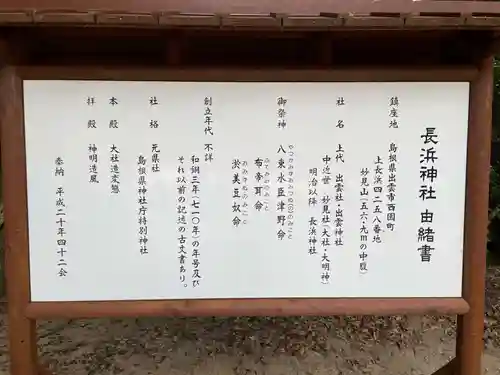 長浜神社 由緒書
鎮座地 島根県出雲市西園町
上長浜四二五八番地
妙見山(五六・九mの中腹)
社名 上代 出雲社・出雲神社
中近世 妙見社(大社・大明神)
明治以降 長浜神社
御祭神 八束水臣津野命
布帝耳命
ふてみみのみこと
淤美豆奴命
おみずぬのみこと
創立年代 不詳
和銅三年(七一〇年)の年号及び
それ以前の記述の古文書あり。
社格 元県社
島根県神社庁特別神社
本殿 大社造変態
拝殿 神明造風
奉納 平成二十年四十二会